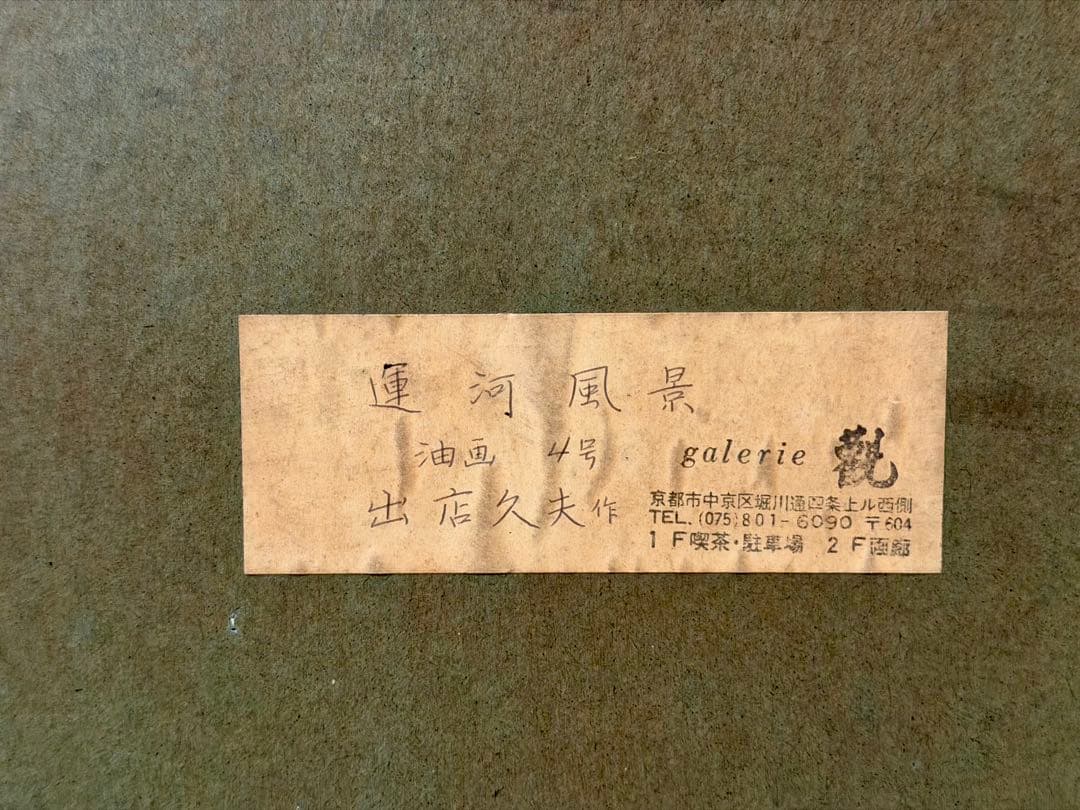 運河風景
油画 4号
出店久夫作
galerie 觀
京都市中京区堀川通四条上ル西側
TEL.(075)801-6090 〒604
1F喫茶・駐車場 2F画廊